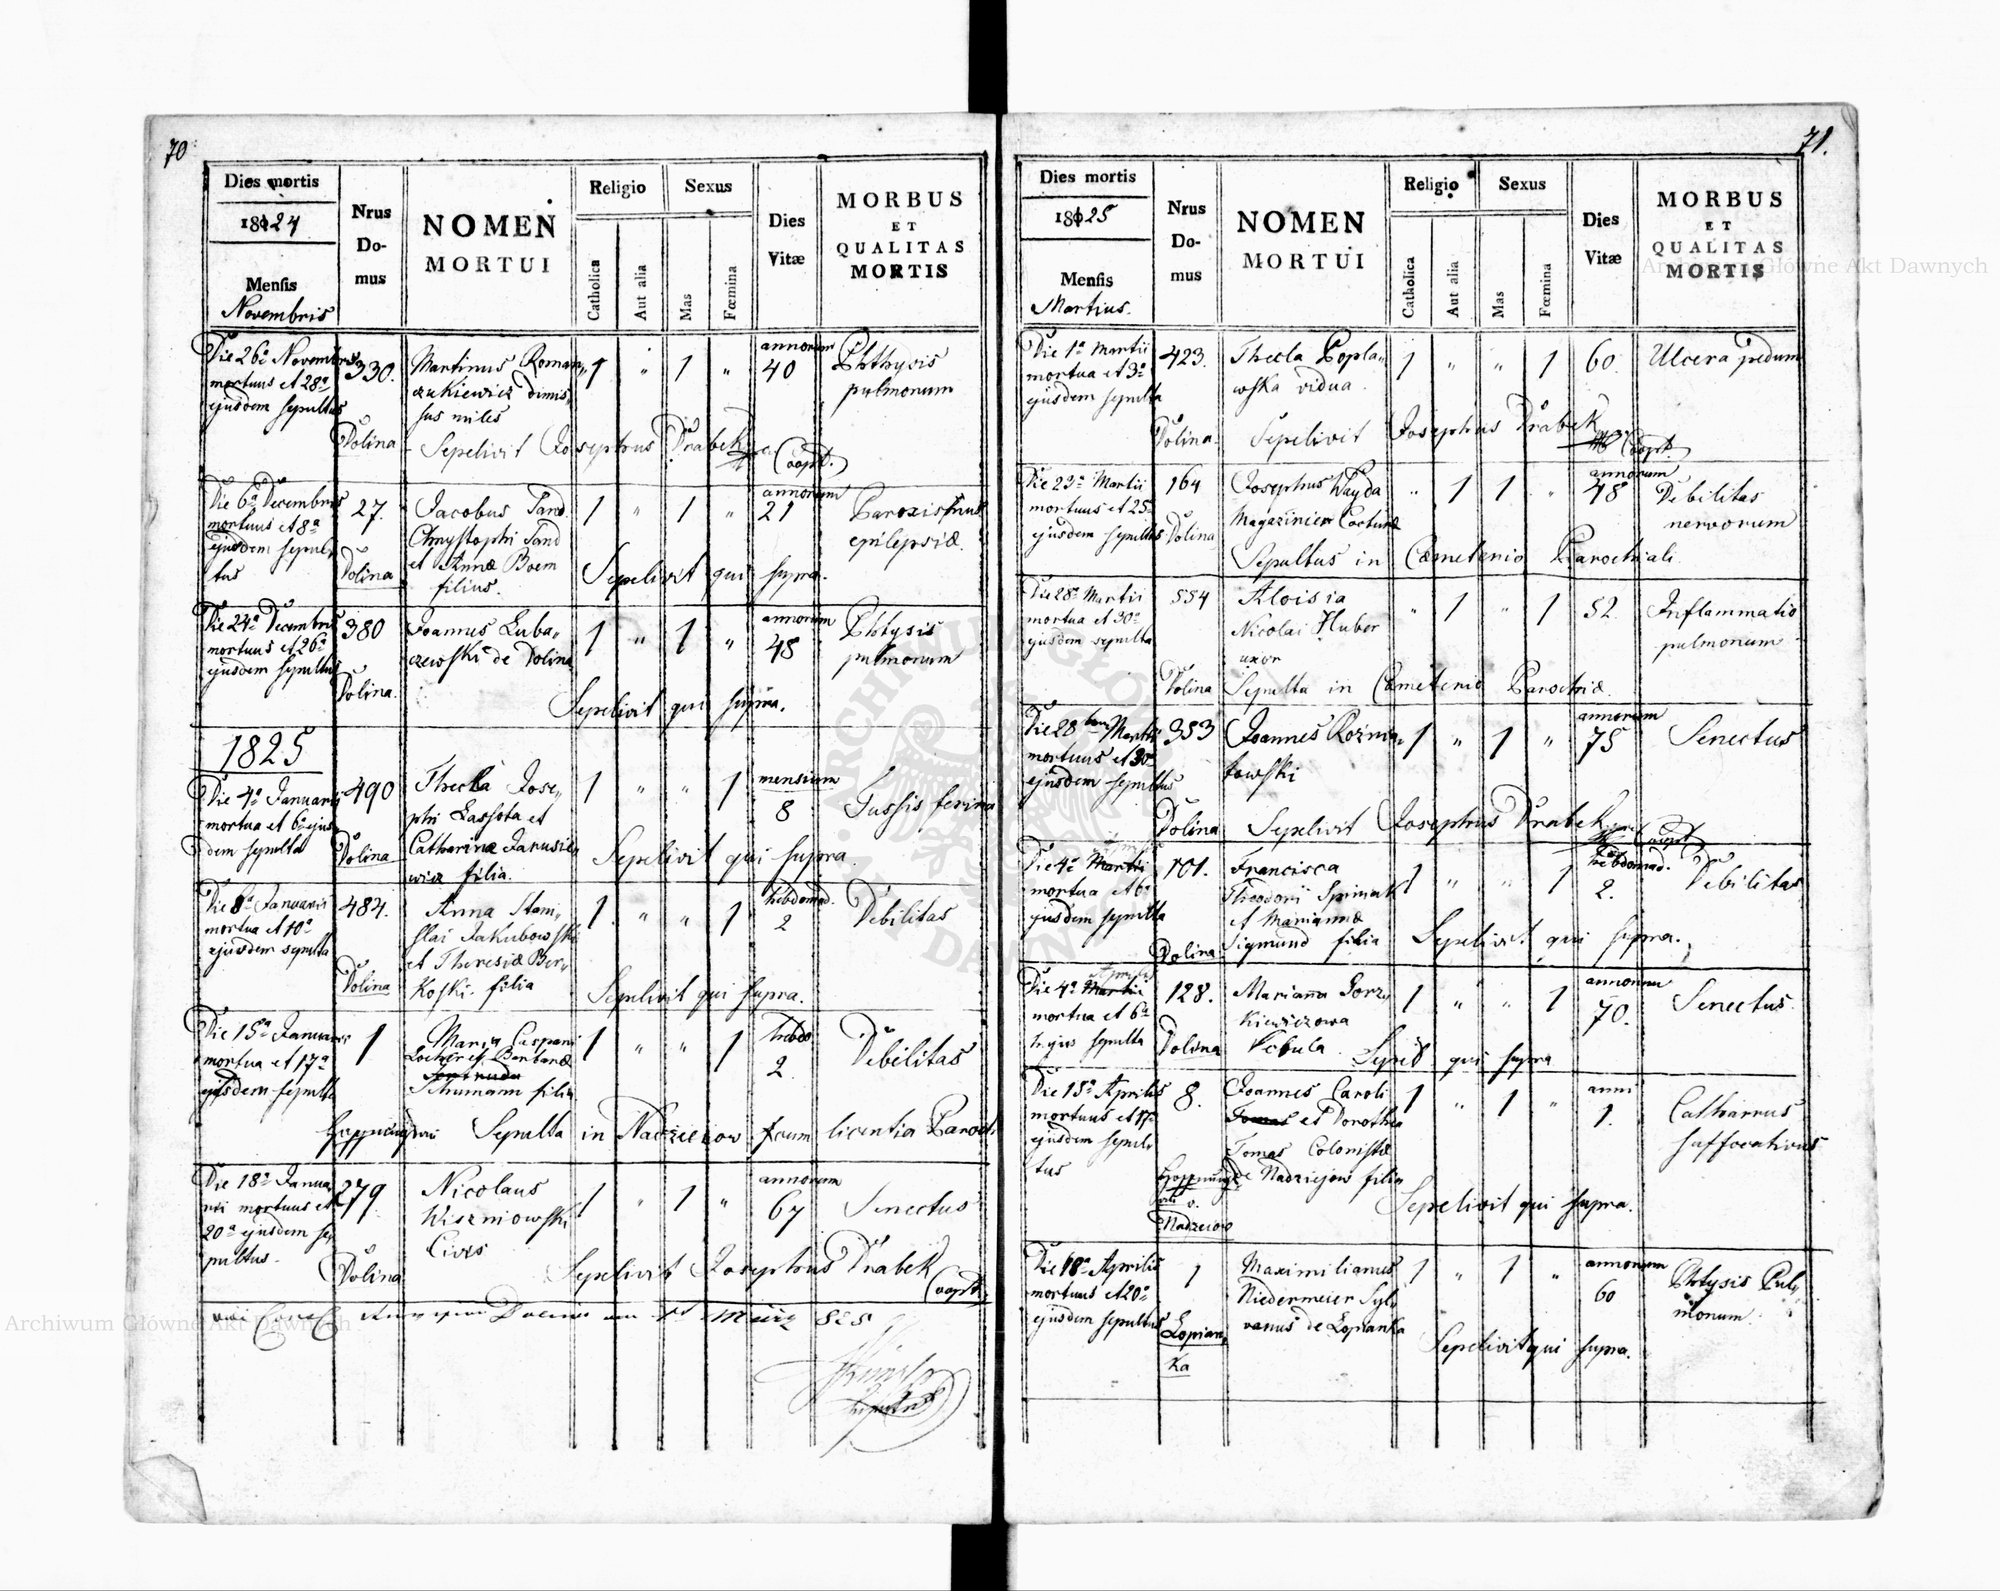 70
Dies mortis
1824
Mensis
Novembris
Nrus
Do-
mus
NOMEN
MORTUI
Religio
Catholica
Aut alia
Sexus
Mas
Fœmina
Dies
Vitæ
MORBUS
ET
QUALITAS
MORTIS
Die 26a Novembris
mortuus et 28a
ejusdem sepultus
330.
Dolina
Martinus Roman„
czukiewicz dimis„
sus miles
1 „ 1 „
annorum
40
Phthysis
pulmonum
Sepelivit Josephus Drabek
Coopt.
Die 6a Decembris
mortuus et 8a
ejusdem sepul„
tus
27.
Dolina
Jacobus Tand
Chrystophi Tand
et Annæ Boem
filius.
1 „ 1 „
annorum
21
Paroxismus
epilepsiæ.
Sepelivit qui supra.
Die 24a Decembris
mortuus et 26a
ejusdem sepultus
380
Dolina.
Joannes Luba„
czewski de Dolina
1 „ 1 „
annorum
48
Phtysis
pulmonum
Sepelivit qui supra.
1825
Die 4a Januarii
mortua et 6a ejus
dem sepulta
490
Dolina
Thecla Jose„
phi Lassota et
Catharinæ Janusie„
wicz filia.
1 „ „ 1
mensium
8
Tussis ferina
Sepelivit qui supra
Die 8a Januarii
mortua et 10a
ejusdem sepulta
484.
Dolina
Anna Stani„
slai Jakubowski
et Theresiæ Ber„
koski filia
1 „ „ 1
hebdomad.
2
Debilitas
Sepelivit qui supra.
Die 15a Januarii
mortua et 17a
ejusdem sepulta
1
Maria Caspari
Barbaræ
Thumann filia
1 „ „ 1
hebdo
2
Debilitas
Sepulta in Nadzieiow cum licentia Paroch
Die 18a Janua
rii mortuus et
20a ejusdem se„
pultus.
279
Dolina
Nicolaus
Wiszniowski
Civis
1 „ 1 „
annorum
67
Senectus
Sepelivit Josephus Drabek
Coopt.
71.
Dies mortis
1825
Mensis
Martius.
Nrus
Do-
mus
NOMEN
MORTUI
Religio
Catholica
Aut alia
Sexus
Mas
Fœmina
Dies
Vitæ
MORBUS
ET
QUALITAS
MORTIS
Die 1a Martii
mortua et 3a
ejusdem sepulta
423.
Dolina.
Thecla Popla„
wska vidua.
1 „ „ 1
60.
Ulcera pedum
Sepelivit Josephus Drabek
Coopt.
Die 23a Martii
mortuus et 25a
ejusdem sepultus
164
Dolina
Josephus Wayda
Magazinier Cocturæ
„ 1 1 „
annorum
48
Debilitas
nervorum
Sepultus in Cæmeterio Parochiali.
Die 28a Martii
mortua et 30a
ejusdem sepulta
554
Dolina
Aloisia
Nicolai Huber
uxor
„ 1 „ 1
52.
Inflammatio
pulmonum
Sepulta in Cæmeterio Parochiæ.
Die 28 Martii
mortuus et 30a
ejusdem sepultus
353
Dolina
Joannes Rożnia„
towski
1 „ 1 „
annorum
75
Senectus
Sepelivit Josephus Drabek
Coopt.
Die 4a Martii
mortua et 6a
ejusdem sepulta
101.
Dolina
Francisca
Theodorii
et Mariannæ
Sigmund filia
1 „ „ 1
hebdomad.
2.
Debilitas
Sepelivit qui supra.
Aprilis
Die 4a Martii
mortua et 6a
hujus sepulta
128.
Dolina
Marianna Gorz„
kiewiczowa
1 „ „ 1
annorum
70.
Senectus
qui supra
Die 15a Aprilis
mortuus et 17a
ejusdem sepul„
tus
8.
Nadzeiow
Joannes Caroli
Tomas et Dorothea
Tomas Colonistæ
de Nadziejow filius
1 „ 1 „
anni
1.
Catharrus
suffocativus
Sepelivit qui supra.
Die 18a Aprilis
mortuus et 20a
ejusdem sepultus
1
Lopian„
ka
Maximilianus
Niedermeier Syl„
vanus de Lopianka
1 „ 1 „
annorum
60
Phtysis Pul„
monum.
Sepelivit qui supra.
Archiwum Główne Akt Dawnych
Archiwum Główne Akt Dawnych